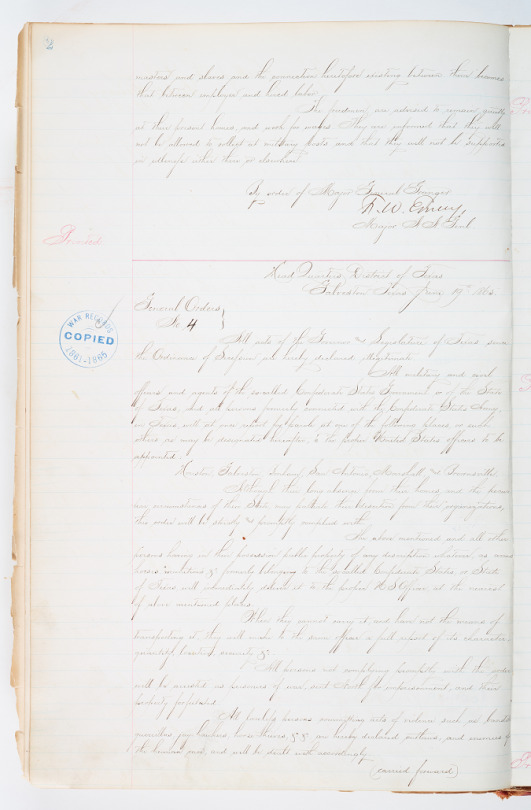 2
masters and slaves, and the connection heretofore existing between them becomes
that between employer and hired labor.
The freedmen are advised to remain quietly
at their present homes, and work for wages. They are informed that they will
not be allowed to collect at military posts and that they will not be supported
in idleness either there or elsewhere
By order of Major General Granger
F.W. Emery,
Major & A. A. Genl
Printed
Head Quarters, District of Texas
Galveston Texas June 19th 1865.
General Orders
No. 4
WAR RECORDS
COPIED
1861-1865
All acts of the Governor & Legislature of Texas since
the Ordinance of Secession are hereby declared illegitimate.
All military and civil
officers and agents of the so-called Confederate States Government or of the State
of Texas, and all persons formerly connected with the Confederate States Army,
in Texas, will at once report for parole at one of the following places or such
others as may be designated hereafter, to the proper United States officers to be
appointed.
Houston, Galveston, San Antonio, Marshall, & Brownsville.
Although their long absence from their homes, and the
circumstances of their State may palliate their desertion from their organizations,
this order will be strictly & promptly complied with.
The above mentioned and all other
persons having in their possession public property of any description whatever, as arms
horses munitions, & formerly belonging to the so-called Confederate States, or State
of Texas will immediately deliver it to the proper U.S. Officer at the nearest
of above mentioned places.
When they cannot carry it and have not the means of
transporting it, they will make to the same officer a full report of its character,
quantity, location, security &
All persons not complying promptly with this order
will be arrested as prisoners of war, sent North for imprisonment, and their
property forfeited
All lawless persons committing acts of violence such as banditti
guerrillas, jay hawkers, horse thieves, & & are hereby declared outlaws, and enemies of
the human race, and will be dealt with accordingly.
(carried forward)